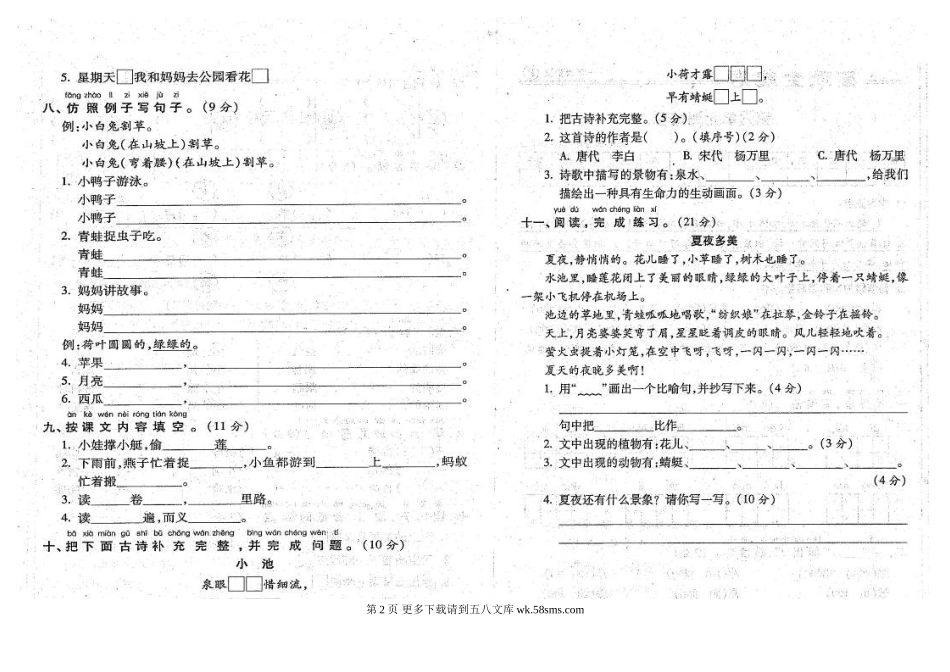 5. 星期天□我和妈妈去公园看花□
fǎng zhào lì zi xiě jù zi
八、仿照例子写句子。(9分)
例:小白兔割草。
小白兔(在山坡上)割草。
小白兔(弯着腰)(在山坡上)割草。
1. 小鸭子游泳。
小鸭子________。
小鸭子________。
2. 青蛙捉虫子吃。
青蛙________。
青蛙________。
3. 妈妈讲故事。
妈妈________。
妈妈________。
例:荷叶圆圆的,绿绿的。
4. 苹果________,________。
5. 月亮________,________。
6. 西瓜________,________。
àn kè wén nèi róng tián kòng
九、按课文内容填空。(11分)
1. 小娃撑小艇,偷______莲______。
2. 下雨前,燕子忙着捉______,小鱼都游到______上______,蚂蚁
忙着搬________。
3. 读______卷______,______里路。
4. 读______遍,而义______。
bǎ xià miàn gǔ shī bǔ chōng wán zhěng bìng wán chéng wèn tí
十、把下面古诗补充完整,并完成问题。(10分)
小 池
泉眼□□惜细流,
小荷才露□□□,
早有蜻蜓□上□。
1. 把古诗补充完整。(5分)
2. 这首诗的作者是( )。(填序号)(2分)
A. 唐代 李白 B. 宋代 杨万里 C. 唐代 杨万里
3. 诗歌中描写的景物有:泉水、______、______、______,给我们
描绘出一种具有生命力的生动画面。(3分)
yuè dú wán chéng liàn xí
十一、阅读,完成练习。(21分)
夏夜多美
夏夜,静悄悄的。花儿睡了,小草睡了,树木也睡了。
水池里,睡莲花闭上了美丽的眼睛,绿绿的大叶子上,停着一只蜻蜓,像
一架小飞机停在机场上。
池边的草地里,青蛙呱呱地唱歌,“纺织娘”在拉琴,金铃子在摇铃。
天上,月亮婆婆笑弯了眉,星星眨着调皮的眼睛。风儿轻轻地吹着。
萤火虫提着小灯笼,在空中飞呀,飞呀,一闪一闪,一闪一闪……
夏天的夜晚多美啊!
1. 用“﹏﹏”画出一个比喻句,并抄写下来。(4分)
句中把________比作________。
2. 文中出现的植物有:花儿、______、______、______。(3分)
3. 文中出现的动物有:蜻蜓、______、______、______、______。
(4分)
4. 夏夜还有什么景象?请你写一写。(10分)
第 2 页 更多下载请到五八文库 wk.58sms.com